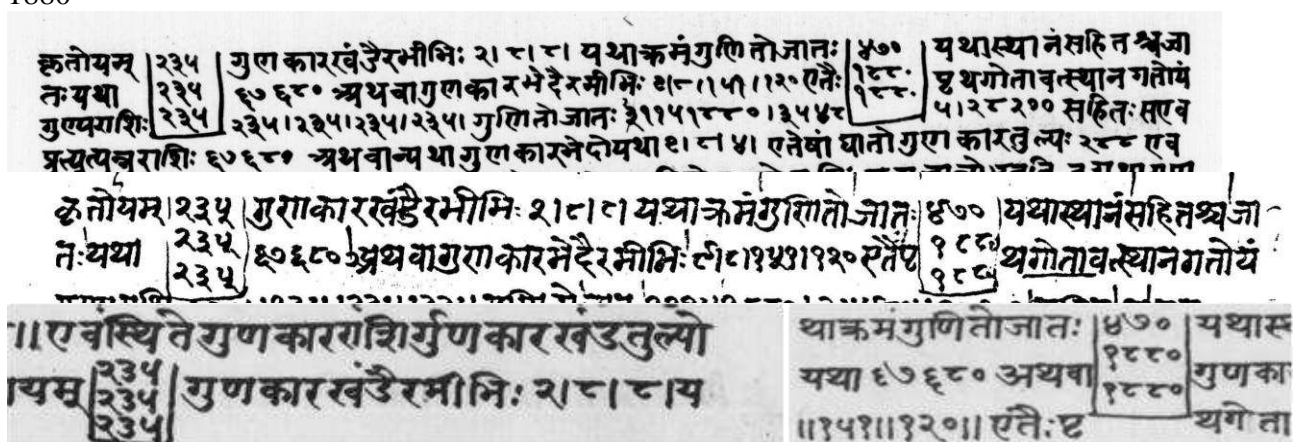 कृतोयम् २३५ गुणकारखंडैरमीभिः २।८।८। यथाक्रमंगुणितोजातः ४७० यथास्थानंसहितश्चजा
तःयथा २३५ ६७६८० अथवागुणकारभेदैरमीभिः ९।८।१५१।१२० एतैः १८८० पृथगोतावत्स्थानगतोयं
गुण्यराशिः २३५ २३५।२३५।२३५।२३५। गुणितोजातः १८८० सहितः सएव
प्रत्युत्पन्नराशिः ६७६८० अथवान्यथागुणकारभेदोयथा ९।८।४। एतेषांघातोगुणकारतुल्यः २८८ एव
कृतोयम् २३५ गुणकारखंडैरमीभिः २।८।८। यथाक्रमंगुणितोजातः ४७० यथास्थानंसहितश्चजा
तःयथा २३५ ६७६८० अथवागुणकारभेदैरमीभिः ९।८।१५१।१२० एतैःपृ १८८ थगोतावत्स्थानगतोयं
२३५ १८८
॥एवंस्थितेगुणकारराशिर्गुणकारखंडतुल्यो
यम् २३५ २३५ २३५ गुणकारखंडैरमीभिः २।८।८।य
थाक्रमंगुणितोजातः ४७० यथास्
यथा ६७६८० अथवा १८८० गुणका
॥१५१॥१२०॥ एतैःपृ १८८० थगोता